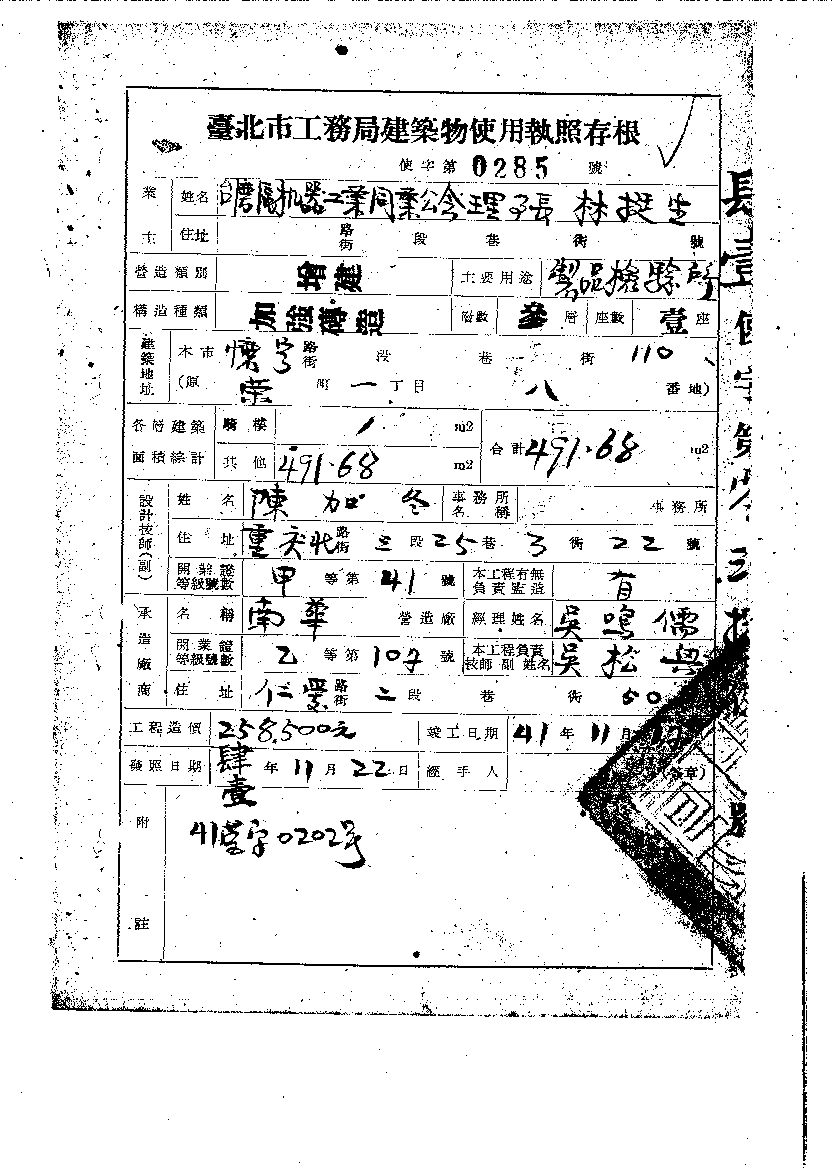 臺北市工務局建築物使用執照存根
使字第 0285 號
業主 姓名 台灣區机器工業同業公會理事長 林挺生
住址 路街 段 巷 街 號
營造類別 增建 主要用途 製品檢驗所
構造種類 加強磚造 階數 叁層 座數 壹座
建築地址 本市 懷寧 路街 段 巷 街 110
(原 榮町 一丁目 八 番地)
各層建築面積綜計 騎樓 / m2
其他 491.68 m2 合計 491.68 m2
設計技師(副) 姓名 陳加冬 事務所名稱 事務所
住址 重庆北路街 三段 25巷 3衖 22號
開業證等級號數 甲等第 41 號 本工程有無負責監造 有
承造廠商 名稱 南華 營造廠 經理姓名 吳鳴儒
開業證等級號數 乙等第 107 號 本工程負責技師副姓名 吳松
住址 仁愛路街 二段 巷 衖 50
工程造價 258,500元 竣工日期 41年11月
發照日期 肆壹年11月22日 經手人 (簽章)
附註 41營字0202号